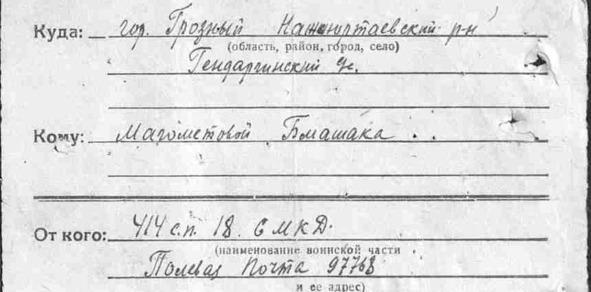 Куда: гор. Грозный Нашиуртаевский р-н
(область, район, город, село)
Гендаргинский с/с.
Кому: Магометовой Бмашака
От кого: 414 с.п. 18. СМКД.
(наименование воинской части
Полевая Почта 97768
и ее адрес)